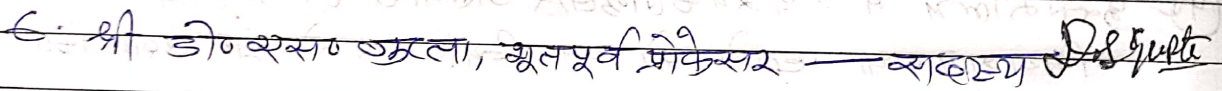 6. श्री डी० एस० गुप्ता, भूतपूर्व प्रोफेसर — सदस्य D.S Gupta